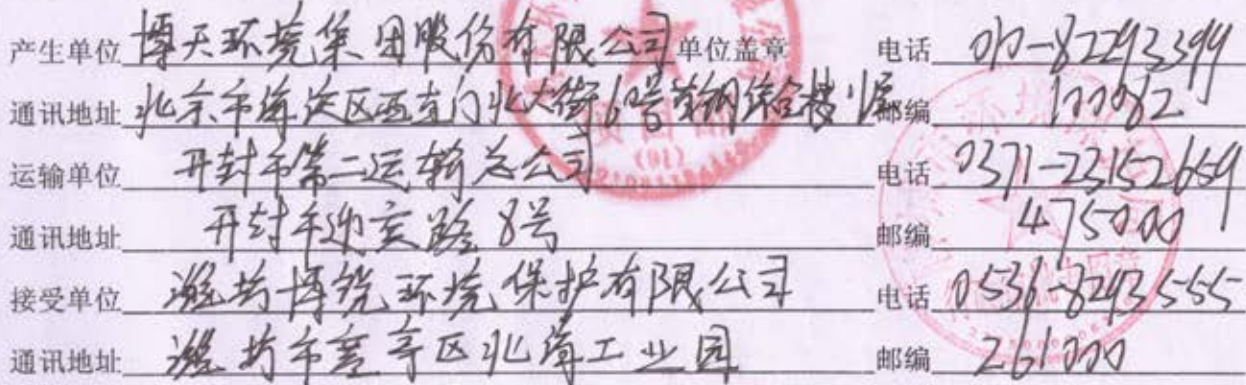 产生单位 博天环境集团股份有限公司 单位盖章 电话 010-82293399
通讯地址 北京市海淀区西直门北大街60号首钢综合楼 邮编 100082
运输单位 开封市第二运输总公司 电话 0371-23152659
通讯地址 开封市迎宾路8号 邮编 475000
接受单位 潍坊博锐环境保护有限公司 电话 0536-8293555
通讯地址 潍坊市寒亭区北海工业园 邮编 261000
(01)